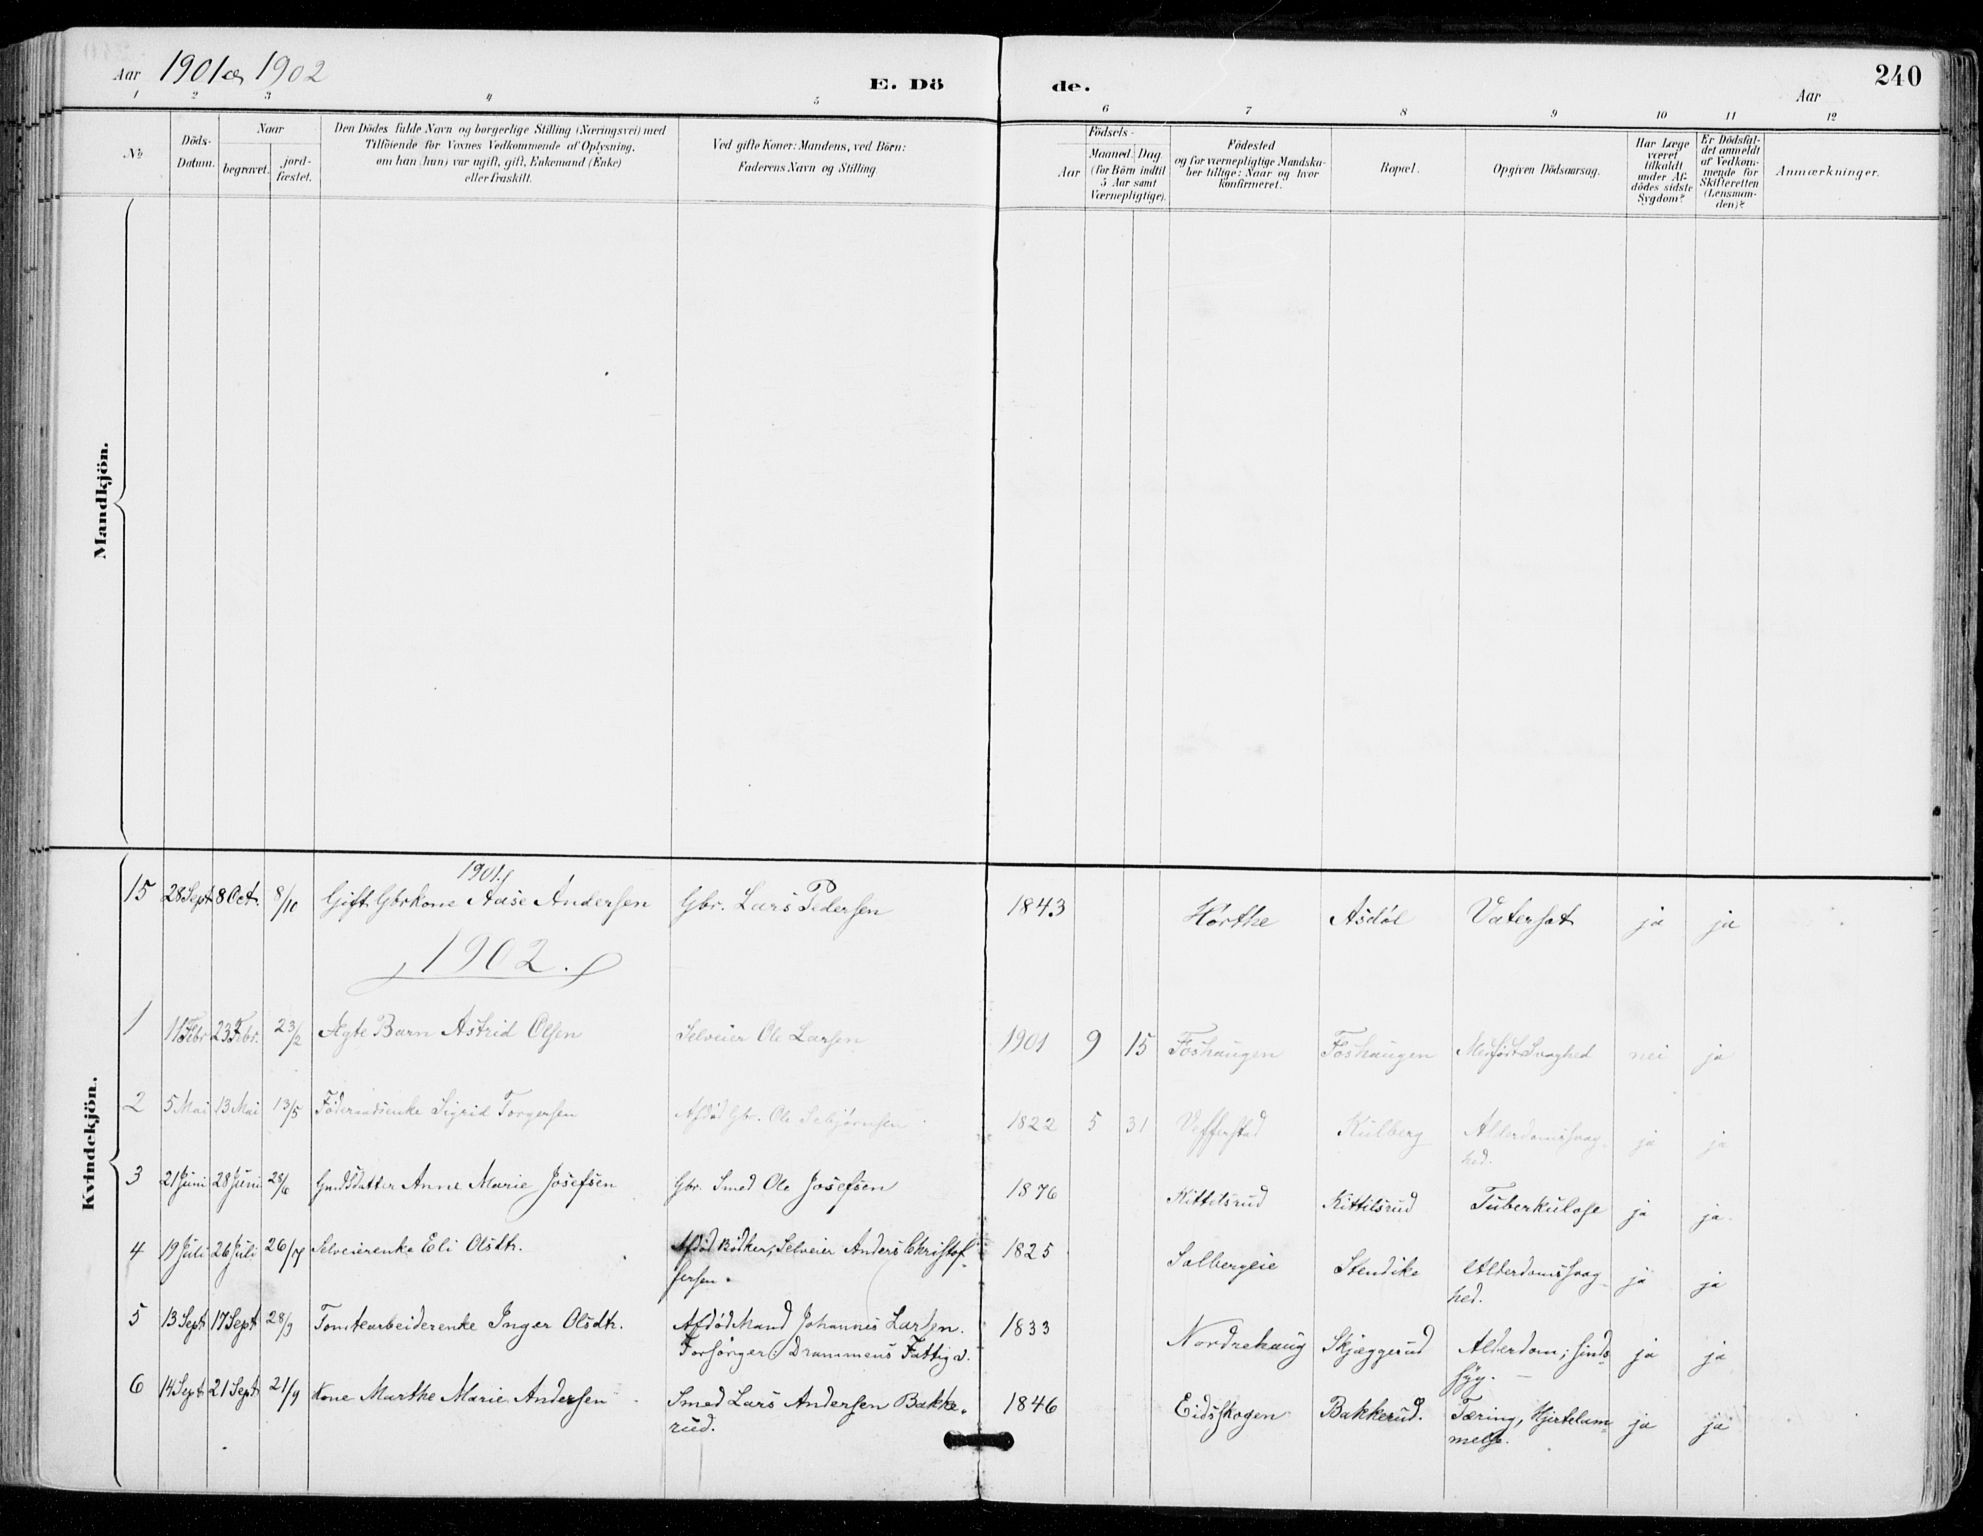 Aar 1901 og 1902
E. Dö de.
Aar
240
1 2 3 4 5 6 7 8 9 10 11 12
№
Döds-
Datum.
Naar
begravet.
jord-
fæstet.
Den Dödes fulde Navn og borgerlige Stilling (Næringsvei) med
Tilföiende for Voxnes Vedkommende af Oplysning,
om han (hun) var ugift, gift, Enkemand (Enke)
eller fraskilt.
Ved gifte Koner: Mandens, ved Börn:
Faderens Navn og Stilling.
Födsels-
Aar
Maaned. Dag.
(for Börn indtil
5 Aar samt
Værnepligtige).
Födested
og for værnepligtige Mandska-
ber tillige: Naar og hvor
konfirmeret.
Bopæl.
Opgiven Dödsaarsag.
Har Læge
været
tilkaldt
under Af-
dödes sidste
Sygdom?
Er Dödsfal-
det anmeldt
af Vedkom-
mende for
Skifteretten
(Lensman-
den)?
Anmærkninger.
Mandkjön.
Kvindekjön.
1901.
15 28 Sept 8 Oct. 8/10 Gift Gbrkone Aase Andersen Gbr. Lars Pedersen 1843 Hørthe Asdøl Vatersot ja ja
1902.
1 11 Febr 23 Febr. 23/2 Ægte Barn Astrid Olsen Selveier Ole Larsen 1901 9 15 Foshaugen Foshaugen Medført Svaghed nei ja
2 5 Mai 13 Mai 13/5 Føderaadsenke Sigrid Torgersen Afdød Gbr. Ole Sebjørnsen 1822 5 31 Kulberg Alderdomssvag-
hed. ja ja
3 21 Juni 28 Juni 28/6 Gaardsdatter Anne Marie Josefsen Gbr. Smed Ole Josefsen 1876 Kittilsrud Kittilsrud Tuberkulose ja ja.
4 19 Juli 26 Juli 26/7 Selveierenke Eli Olsdtr. Afdød Bødker, Selveier Anders Christof-
fersen. 1825 Solbergeie Stendike Alderdomssvag-
hed. ja ja
5 13 Sept 17 Sept 28/9 Tomtearbeiderenke Inger Olsdtr. Afdød Mand Johannes Larsen.
Forsørger: Drammens Fattigv. 1833 Nordrehaug Skjæggerud Alderdom; sinds-
syg. ja ja
6 14 Sept 21 Sept 21/9 Kone Marthe Marie Andersen Smed Lars Andersen Bakke-
rud. 1846 Eidsskogen Bakkerud. Tæring, Hjertelam-
melse. ja ja